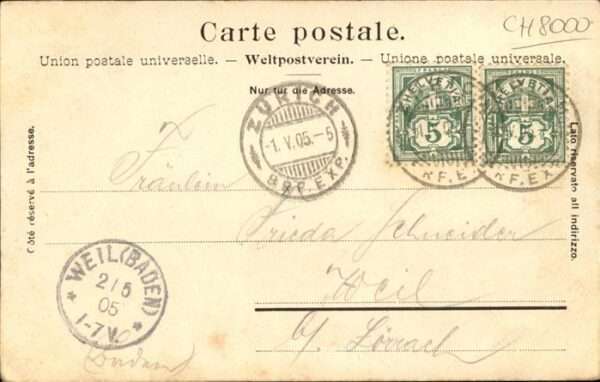 Carte postale.
CH 8000
Union postale universelle. — Weltpostverein. — Unione postale universale.
Nur für die Adresse.
Côté réservé à l'adresse.
Lato riservato all indirizzo.
ZÜRICH
-1.V.05.-5
BRF. EXP.
HELVETIA
5
HELVETIA
5
BRF. EXP.
BRF. EXP.
Fräulein
Frieda Schneider
Weil
b/ Lörrach
(Baden)
WEIL (BADEN)
2/5
05
1-7V.